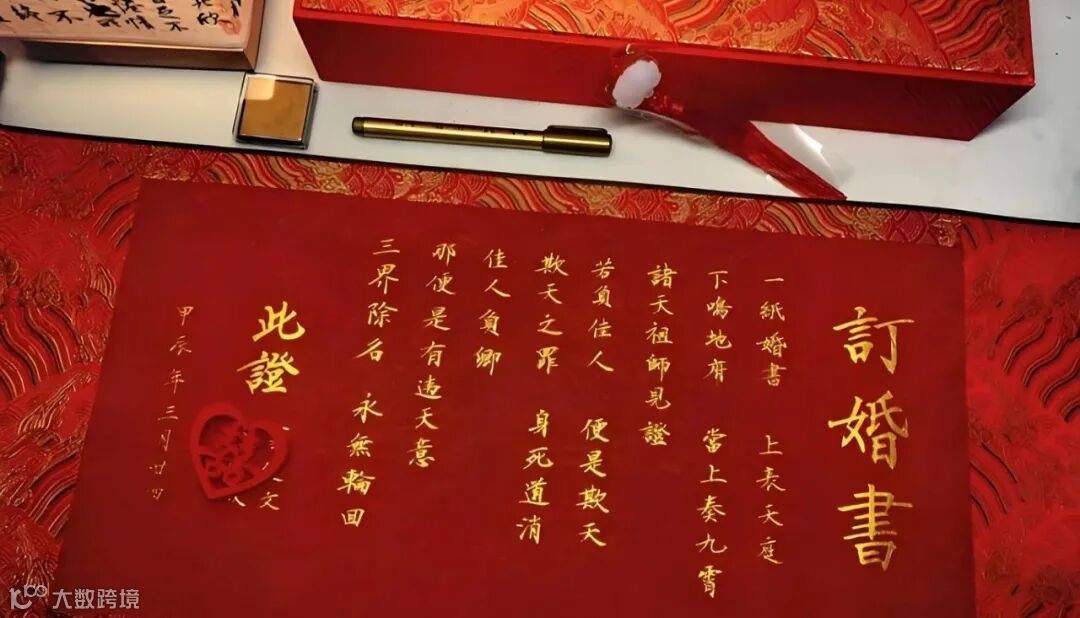 訂婚書
一紙婚書 上表天庭
下鳴地府 當上奏九霄
諸天祖師見證
若負佳人 便是欺天
欺天之罪 身死道消
佳人負卿
那便是有違天意
三界除名 永無輪回
此證
文
甲辰年三月廿四
大数跨境